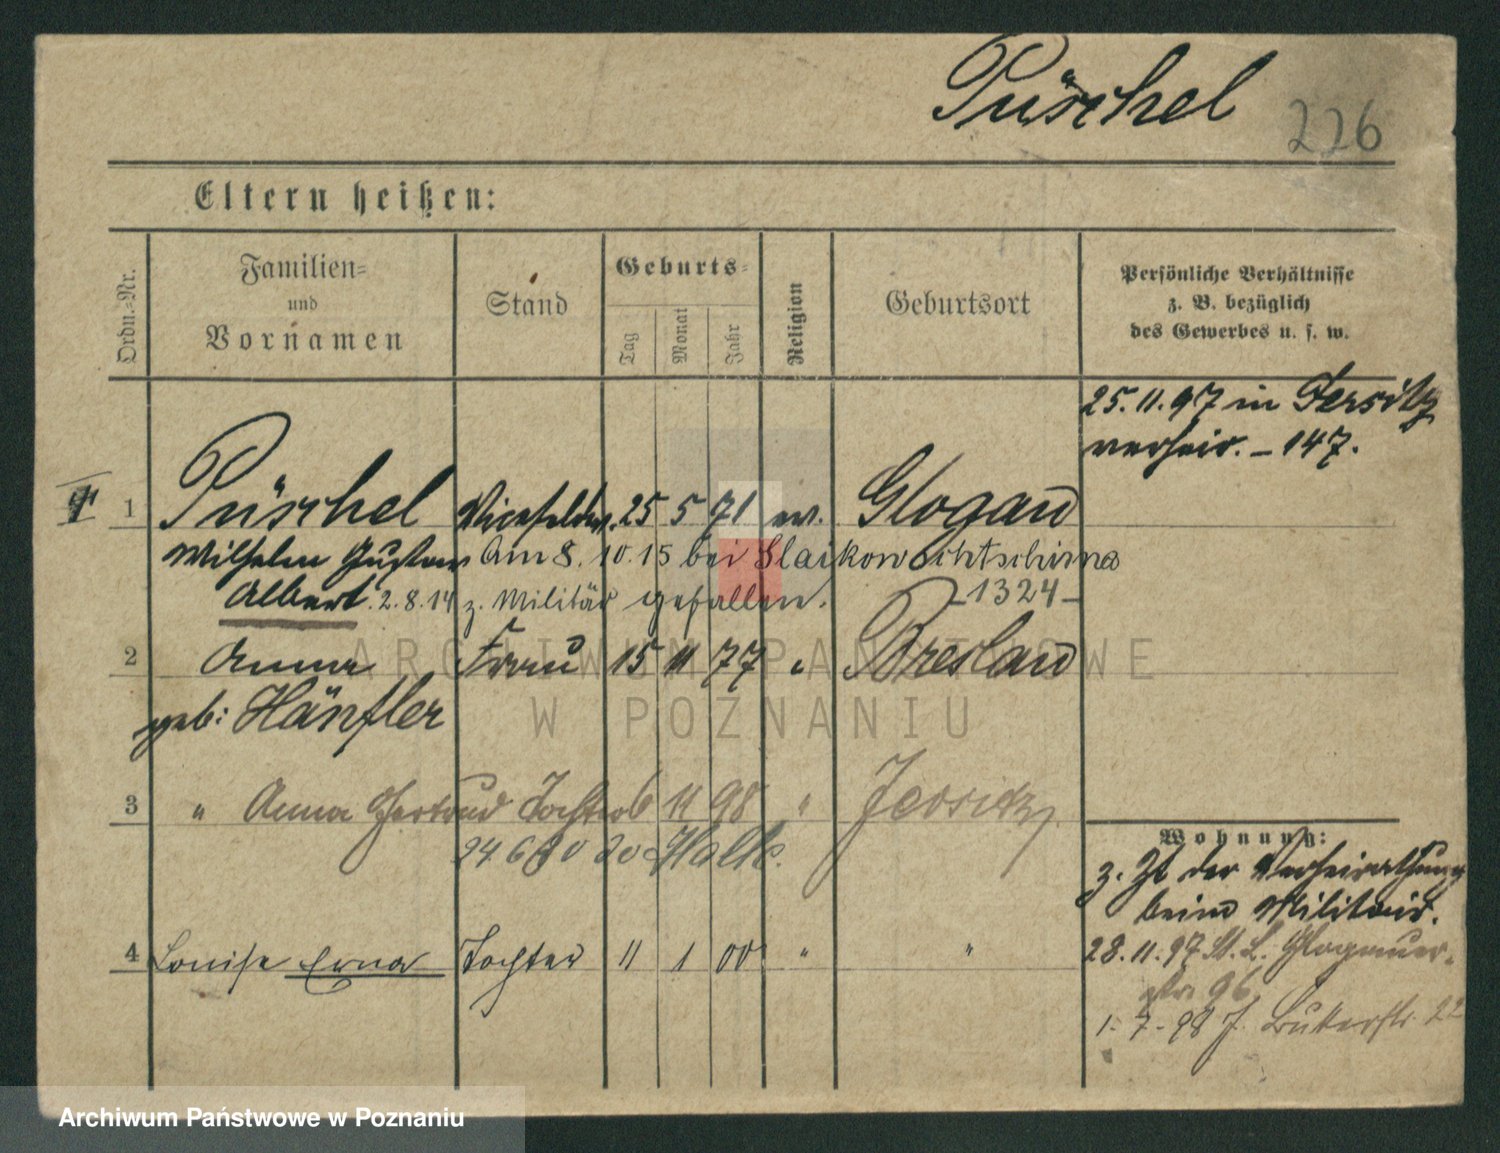 Püschel 226
Eltern heißen:
Ordn.-Nr.
Familien-
und
Vornamen
Stand
Geburts-
Tag
Monat
Jahr
Religion
Geburtsort
Persönliche Verhältnisse
z. B. bezüglich
des Gewerbes u. s. w.
25.11.97 in Jersitz
verheir. – 147.
1 Püschel Vicefeldw. 25 5 71 ev. Glogau
Wilhelm Gustav am 8. 10. 15 bei
Albert 2.8.14 z. Militär gefallen. – 1324 –
2 Anna Frau 15 11 77 " Breslau
geb: Hänfler
3 " Anna Gertrud Tochter 6 11 98 " Jersitz
4 Louise Erna Tochter 11 1 00 " "
Wohnung:
z. Zt der Verheirathung
beim Militair.
28.11.97 St. L. Glogauer-
str. 96
1.-7-98 J. 22
ARCHIWUM PAŃSTWOWE
W POZNANIU
Archiwum Państwowe w Poznaniu